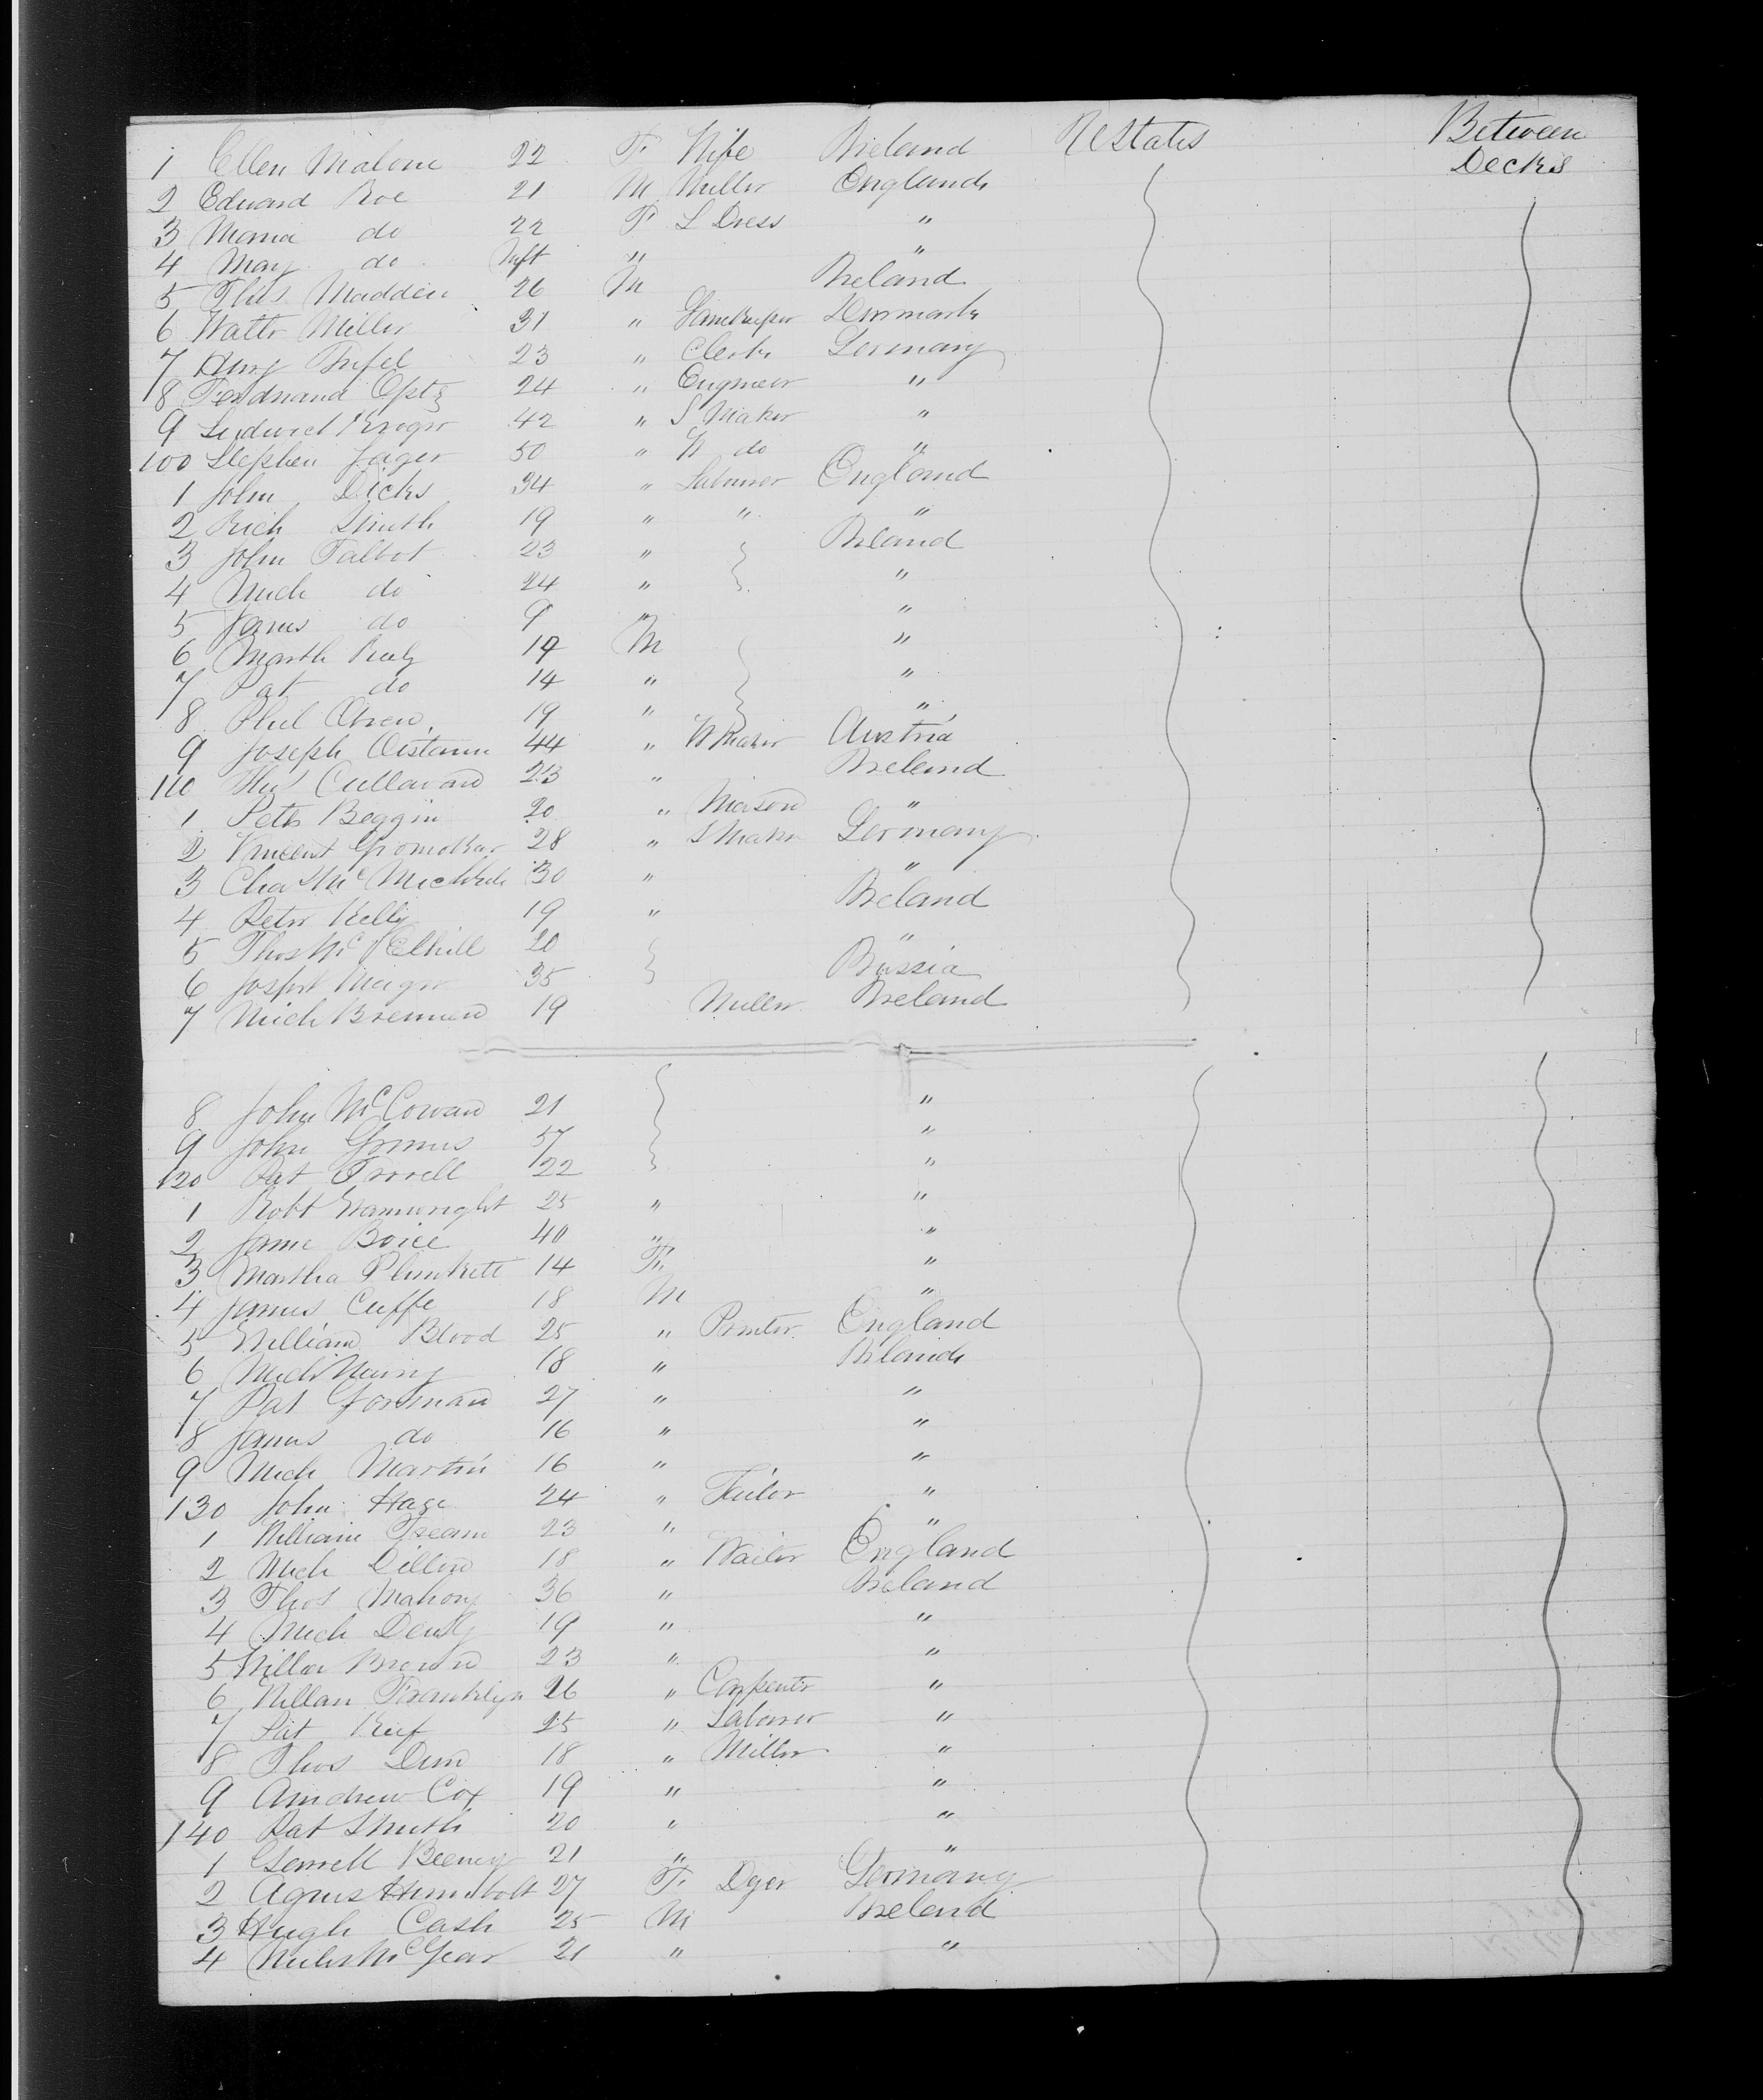 1 Ellen Malone 22 F Wife Ireland U States Between Decks
2 Edward Roe 21 M Miller England
3 Maria do 22 F L Dress "
4 May do Inft " "
5 Thos Madden 26 M Ireland
6 Walter Miller 31 " Denmark
7 23 " Clerk Germany
8 Ferdnand Optz 24 " Engineer "
9 Ludwick Kroger 42 " S Maker "
100 Stephen Jager 50 " W do "
1 John Dicks 34 " Labourer England
2 Rich Smith 19 " " "
3 John Talbot 23 " Ireland
4 Mich do 24 " "
5 James do 9 " "
6 Marth 19 M "
7 Pat do 14 " "
8 Phil 19 " "
9 Joseph 44 " W Maker Austria
110 Thos 23 " Ireland
1 Peter Beggin 20 " Mason "
2 Vincent 28 " S Maker Germany
3 Chas Mc 30 " "
4 Peter Kelly 19 " Ireland
5 Thos Mc Elhill 20 "
6 Joseph 35 Russia
7 Mich Brennan 19 Miller Ireland
8 John McCowan 21 "
9 John Grimes 57 "
120 Pat Farrell 22 "
1 Robt Wainwright 25 " "
2 Jane Boice 40 " "
3 Martha Plunkett 14 F "
4 James Cuffe 18 M "
5 William Blood 25 " Printer England
6 Mich 18 " Ireland
7 Pat Gorman 27 " "
8 James do 16 " "
9 Mich Martin 16 " "
130 John Hage 24 " Tailor "
1 William 23 " "
2 Mich Dillon 18 " Waiter England
3 Thos Mahony 36 " Ireland
4 Mich 19 " "
5 Brown 23 " "
6 Franklyn 26 " Carpenter "
7 Pat 25 " Labourer "
8 Thos 18 " Miller "
9 Andrew Cox 19 " "
140 Pat Smith 20 " "
1 21 " "
2 Agnes Humbolt 27 F Dyer Germany
3 Hugh Cash 25 M Ireland
4 21 " "